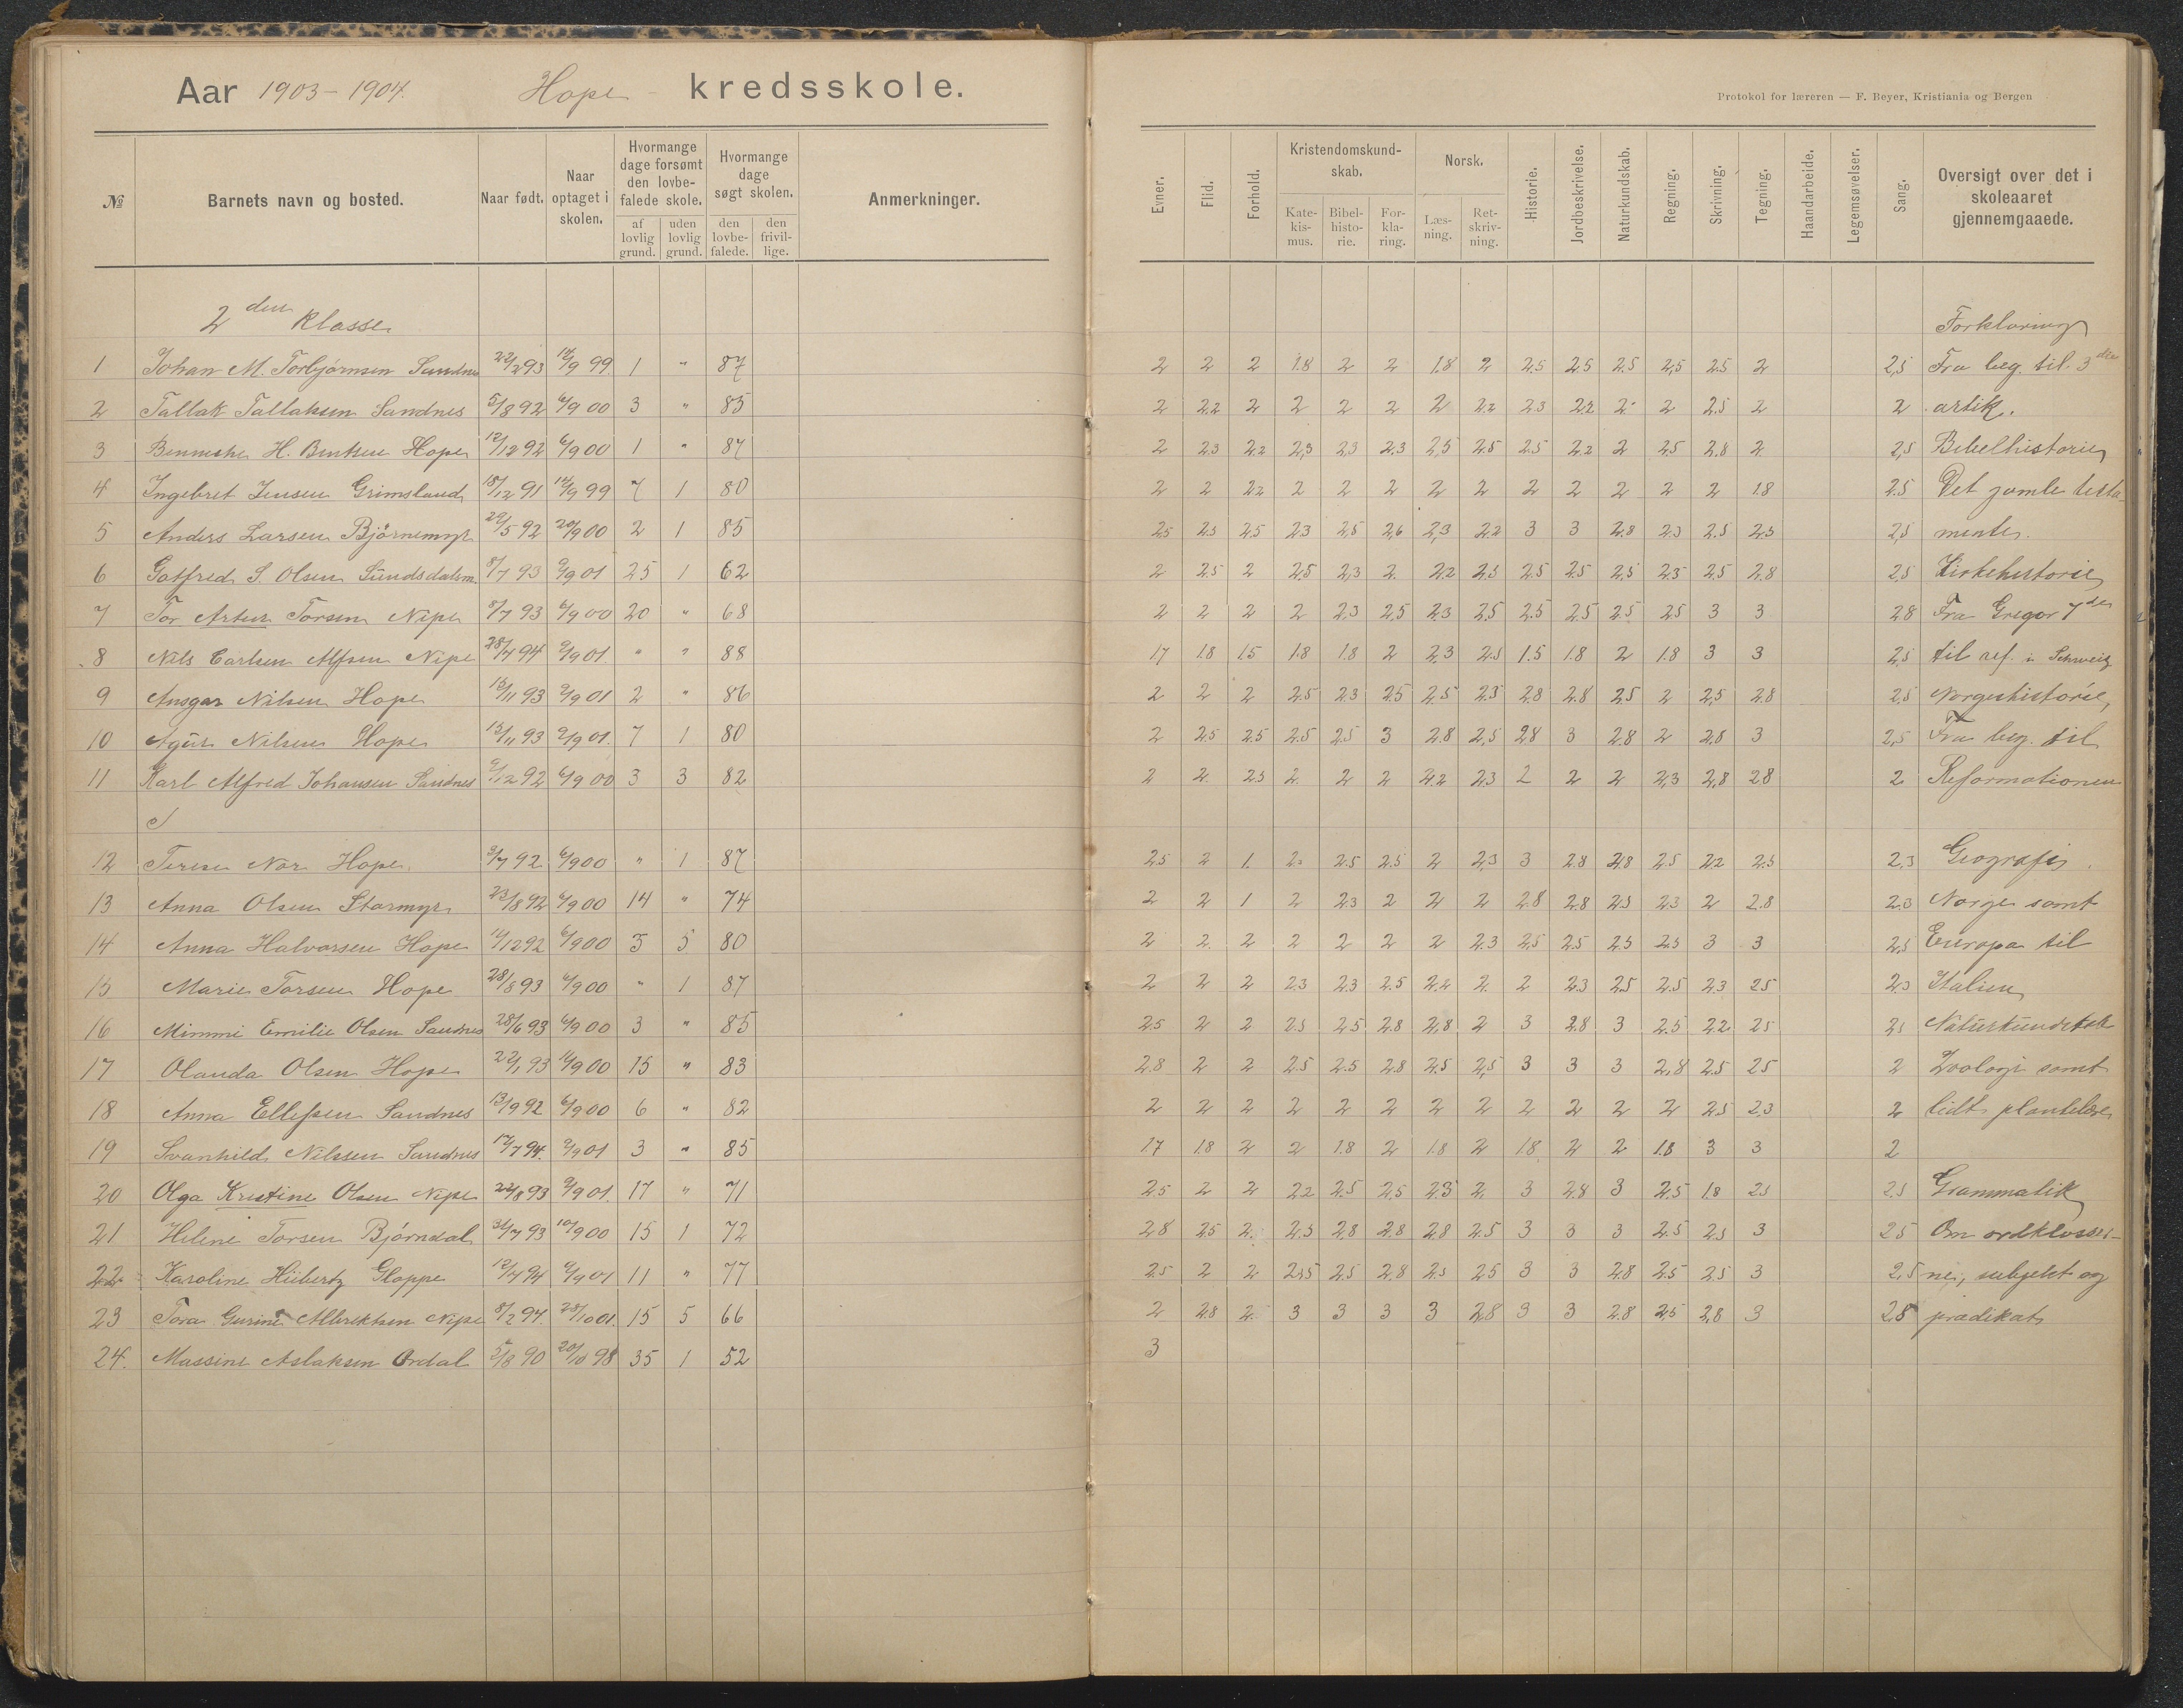 Aar 1903-1904. Hope kredsskole.
Protokol for læreren — F. Beyer, Kristiania og Bergen
№ Barnets navn og bosted. Naar født. Naar optaget i skolen. Hvormange dage forsømt den lovbefalede skole. af lovlig grund. uden lovlig grund. Hvormange dage søgt skolen. den lovbefalede. den frivillige. Anmerkninger.
Evner. Flid. Forhold. Kristendomskundskab. Katekismus. Bibelhistorie. Forklaring. Norsk. Læsning. Retskrivning. Historie. Jordbeskrivelse. Naturkundskab. Regning. Skrivning. Tegning. Haandarbeide. Legemsøvelser. Sang. Oversigt over det i skoleaaret gjennemgaaede.
2den Klasse Forklaring
1 Johan M. Torbjørnsen Sandnes 22/2 93 14/9 99 1 " 87 2 2 2 1.8 2 2 1.8 2 2.5 2.5 2.5 2,5 2.5 2 2,5 Fra beg. til 3die
2 Tallak Tallaksen Sandnes 5/8 92 6/9 00 3 " 85 2 2.2 2 2 2 2 2 2.2 2.3 2.2 2 2 2.5 2 2 artik.
3 H. Bentsen Hope 12/12 92 6/9 00 1 " 87 2 2.3 2.2 2,3 2,3 2.3 2,5 2.5 2.5 2.2 2 2.5 2.8 2 2,5 Bibelhistorie
4 Ingebret Jensen Grimsland 18/12 91 14/9 99 7 1 80 2 2 2.2 2 2 2 2 2 2 2 2 2 2 1.8 2.5 Det gamle testa-
5 Anders Larsen Bjørnemyr 29/5 92 20/9 00 2 1 85 2.5 2.5 2.5 2.3 2,5 2,6 2,3 2.2 3 3 2.8 2.3 2.5 2.5 2,5 mente.
6 Gotfred S. Olsen Sundsdalsm. 8/7 93 9/9 01 25 1 62 2 2.5 2 2,5 2,3 2 2.2 2.5 2.5 2.5 2.5 2.5 2,5 2.8 2,5 Kirkehistorie
7 Tor Artur Torsen Nipe 8/7 93 6/9 00 20 " 68 2 2 2 2 2.3 2.5 2.3 2.5 2.5 2.5 2.5 2.5 3 3 2.8 Fra Gregor 7de
8 Nils Carlsen Alfsen Nipe 28/4 94 9/9 01 " " 88 1.7 1.8 1.5 1.8 1.8 2 2,3 2.5 1.5 1.8 2 1.8 3 3 2,5 til ref. i Schweitz
9 Ansgar Nilsen Hope 15/11 93 9/9 01 2 " 86 2 2 2 2.5 2.3 2.5 2,5 2.5 2.8 2.8 2,5 2 2,5 2.8 2,5 Norgeshistorie,
10 Agur Nilsen Hope 15/11 93 9/9 01. 7 1 80 2 2.5 2.5 2.5 2.5 3 2.8 2,5 2.8 3 2.8 2 2,8 3 2,5 Fra beg. til
11 Karl Alfred Johansen Sandnes 9/12 92 6/9 00 3 3 82 2 2 2.5 2 2 2 2.2 2.3 2 2 2 2,3 2,8 2.8 2 Reformationen
12 Terese Nor Hope. 3/7 92 6/9 00 " 1 87 2.5 2 1. 2 2.5 2.5 2 2,3 3 2.8 2.8 2.5 2.2 2.5 2.3 Geografi.
13 Anna Olsen Stormyr 23/8 92 6/9 00 14 " 74 2 2 1 2 2.3 2 2 2 2.8 2.8 2.5 2.3 2 2.8 2.3 Norge samt
14 Anna Halvorsen Hope 11/12 92 6/9 00 3 5 80 2 2 2 2 2 2 2 2.3 2.5 2.5 2.5 2.5 3 3 2,5 Europa til
15 Marie Torsen Hope 28/8 93 6/9 00 " 1 87 2 2 2 2.3 2.3 2.5 2.2 2 2 2.3 2.5 2.5 2.3 2.5 2.3 Italien
16 Mimmi Emilie Olsen Sandnes 28/6 93 6/9 00 3 " 85 2.5 2 2 2.5 2.5 2.8 2,8 2 3 2.8 3 2.5 2.2 2.5 2,5 Naturkundskab
17 Olanda Olsen Hope 22/1 93 14/9 00 15 " 83 2.8 2 2 2.5 2.5 2.8 2.5 2,5 3 3 3 2,8 2.5 2.5 2 Zoologi samt
18 Anna Ellefsen Sandnes 13/9 92 6/9 00 6 " 82 2 2 2 2 2 2 2 2 2 2 2 2 2.5 2.3 2 lidt plantelære
19 Svanhild Nilssen Sandnes 17/7 94. 9/9 01 3 " 85 1.7 1.8 2 2 1.8 2 1.8 2 1.8 2 2 1.8 3 3 2
20 Olga Kristine Olsen Nipe 22/8 93 9/9 01. 17 " 71 2.5 2 2 2.2 2.5 2,5 2.3 2 3 2.8 3 2.5 1.8 2.5 2.5 Grammatik
21 Helene Torsen Bjørndal 31/7 93 10/9 00 15 1 72 2.8 2.5 2 2.5 2.8 2.8 2.8 2.5 3 3 3 2.5 2.5 3 2.5 Om ordklasser-
22 Karoline Hübertz Gloppe 12/4 94 9/9 01 11 " 77 2.5 2 2 2.5 2.5 2.8 2.5 2.5 3 3 2.8 2.5 2.5 3 2,5 ne, subjekt og
23 Tora Gurine Albrektsen Nipe 8/2 94. 28/10 01. 15 5 66 2 2.8 2 3 3 3 3 2.8 3 3 2.8 2,5 2,8 3 2.8 prædikat
24. Massine Aslaksen Ordal 5/8 90 20/10 98 35 1 52 3